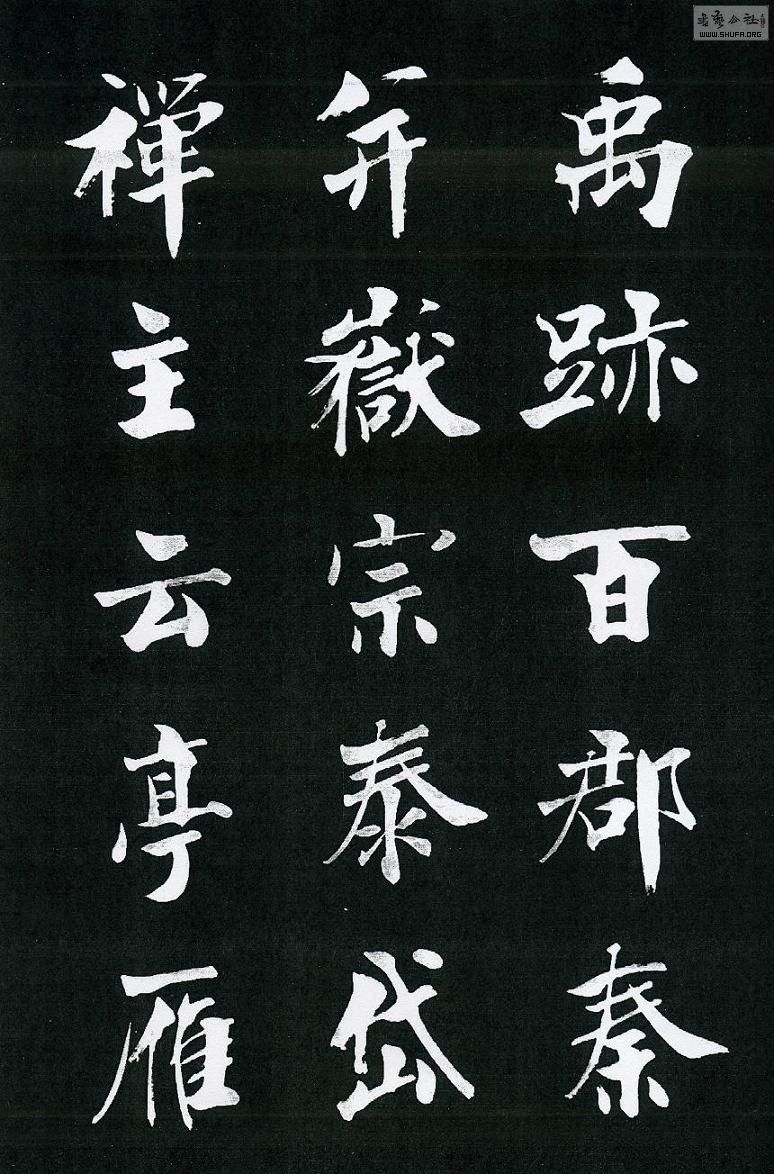 禹跡百郡秦
并嶽宗泰岱
禪主云亭雁
WWW.SHUFA.ORG